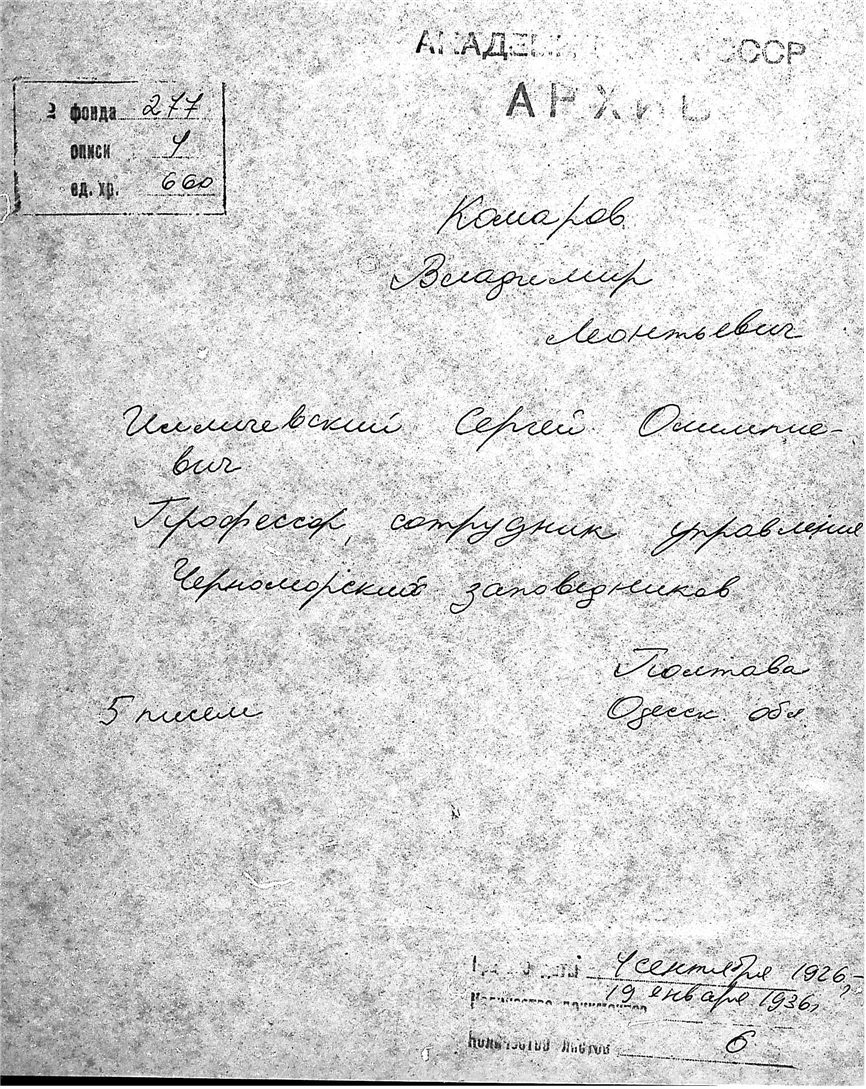 СССР
АРХИВ
№ фонда 277
описи 1
ед. хр. 660
Комаров
Владимир
Леонтьевич
Илличевский Сергей Олимпие-
вич
Профессор, сотрудник управления
Черноморских заповедников
Полтава
5 писем
Одесск. обл.
1 сентября 1926 -
19 января 1936г
Количество документов
Количество листов 6